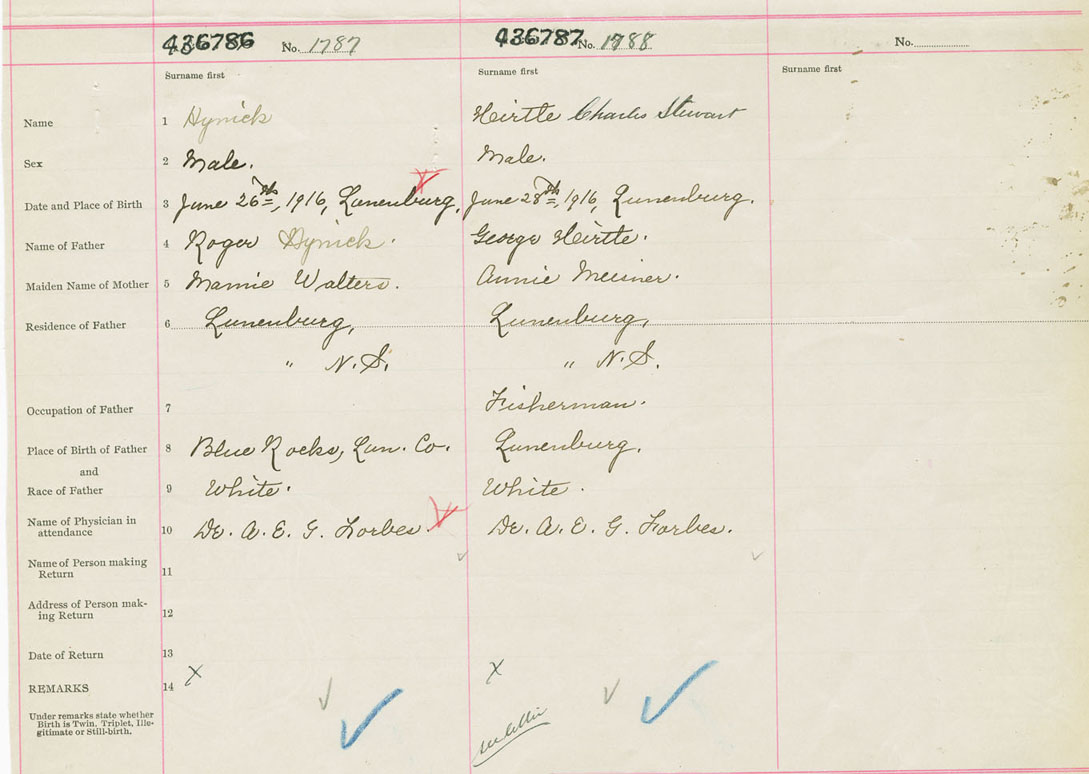 436786 No. 1787 436787 No. 1788 No.
Surname first Surname first Surname first
Name 1 Hynick Heirtle Charles Stewart
Sex 2 Male. Male.
Date and Place of Birth 3 June 26th, 1916, Lunenburg, June 28th, 1916, Lunenburg.
Name of Father 4 Roger Hynick. George Heirtle.
Maiden Name of Mother 5 Mamie Walters. Annie Meisner.
Residence of Father 6 Lunenburg, Lunenburg,
" N.S. " N.S.
Occupation of Father 7 Fisherman.
Place of Birth of Father 8 Blue Rocks, Lun. Co. Lunenburg.
and
Race of Father 9 White. White.
Name of Physician in
attendance 10 Dr. A. E. G. Forbes. Dr. A. E. G. Forbes.
Name of Person making
Return 11
Address of Person mak-
ing Return 12
Date of Return 13
REMARKS 14 X X
Under remarks state whether
Birth is Twin, Triplet, Ille-
gitimate or Still-birth.